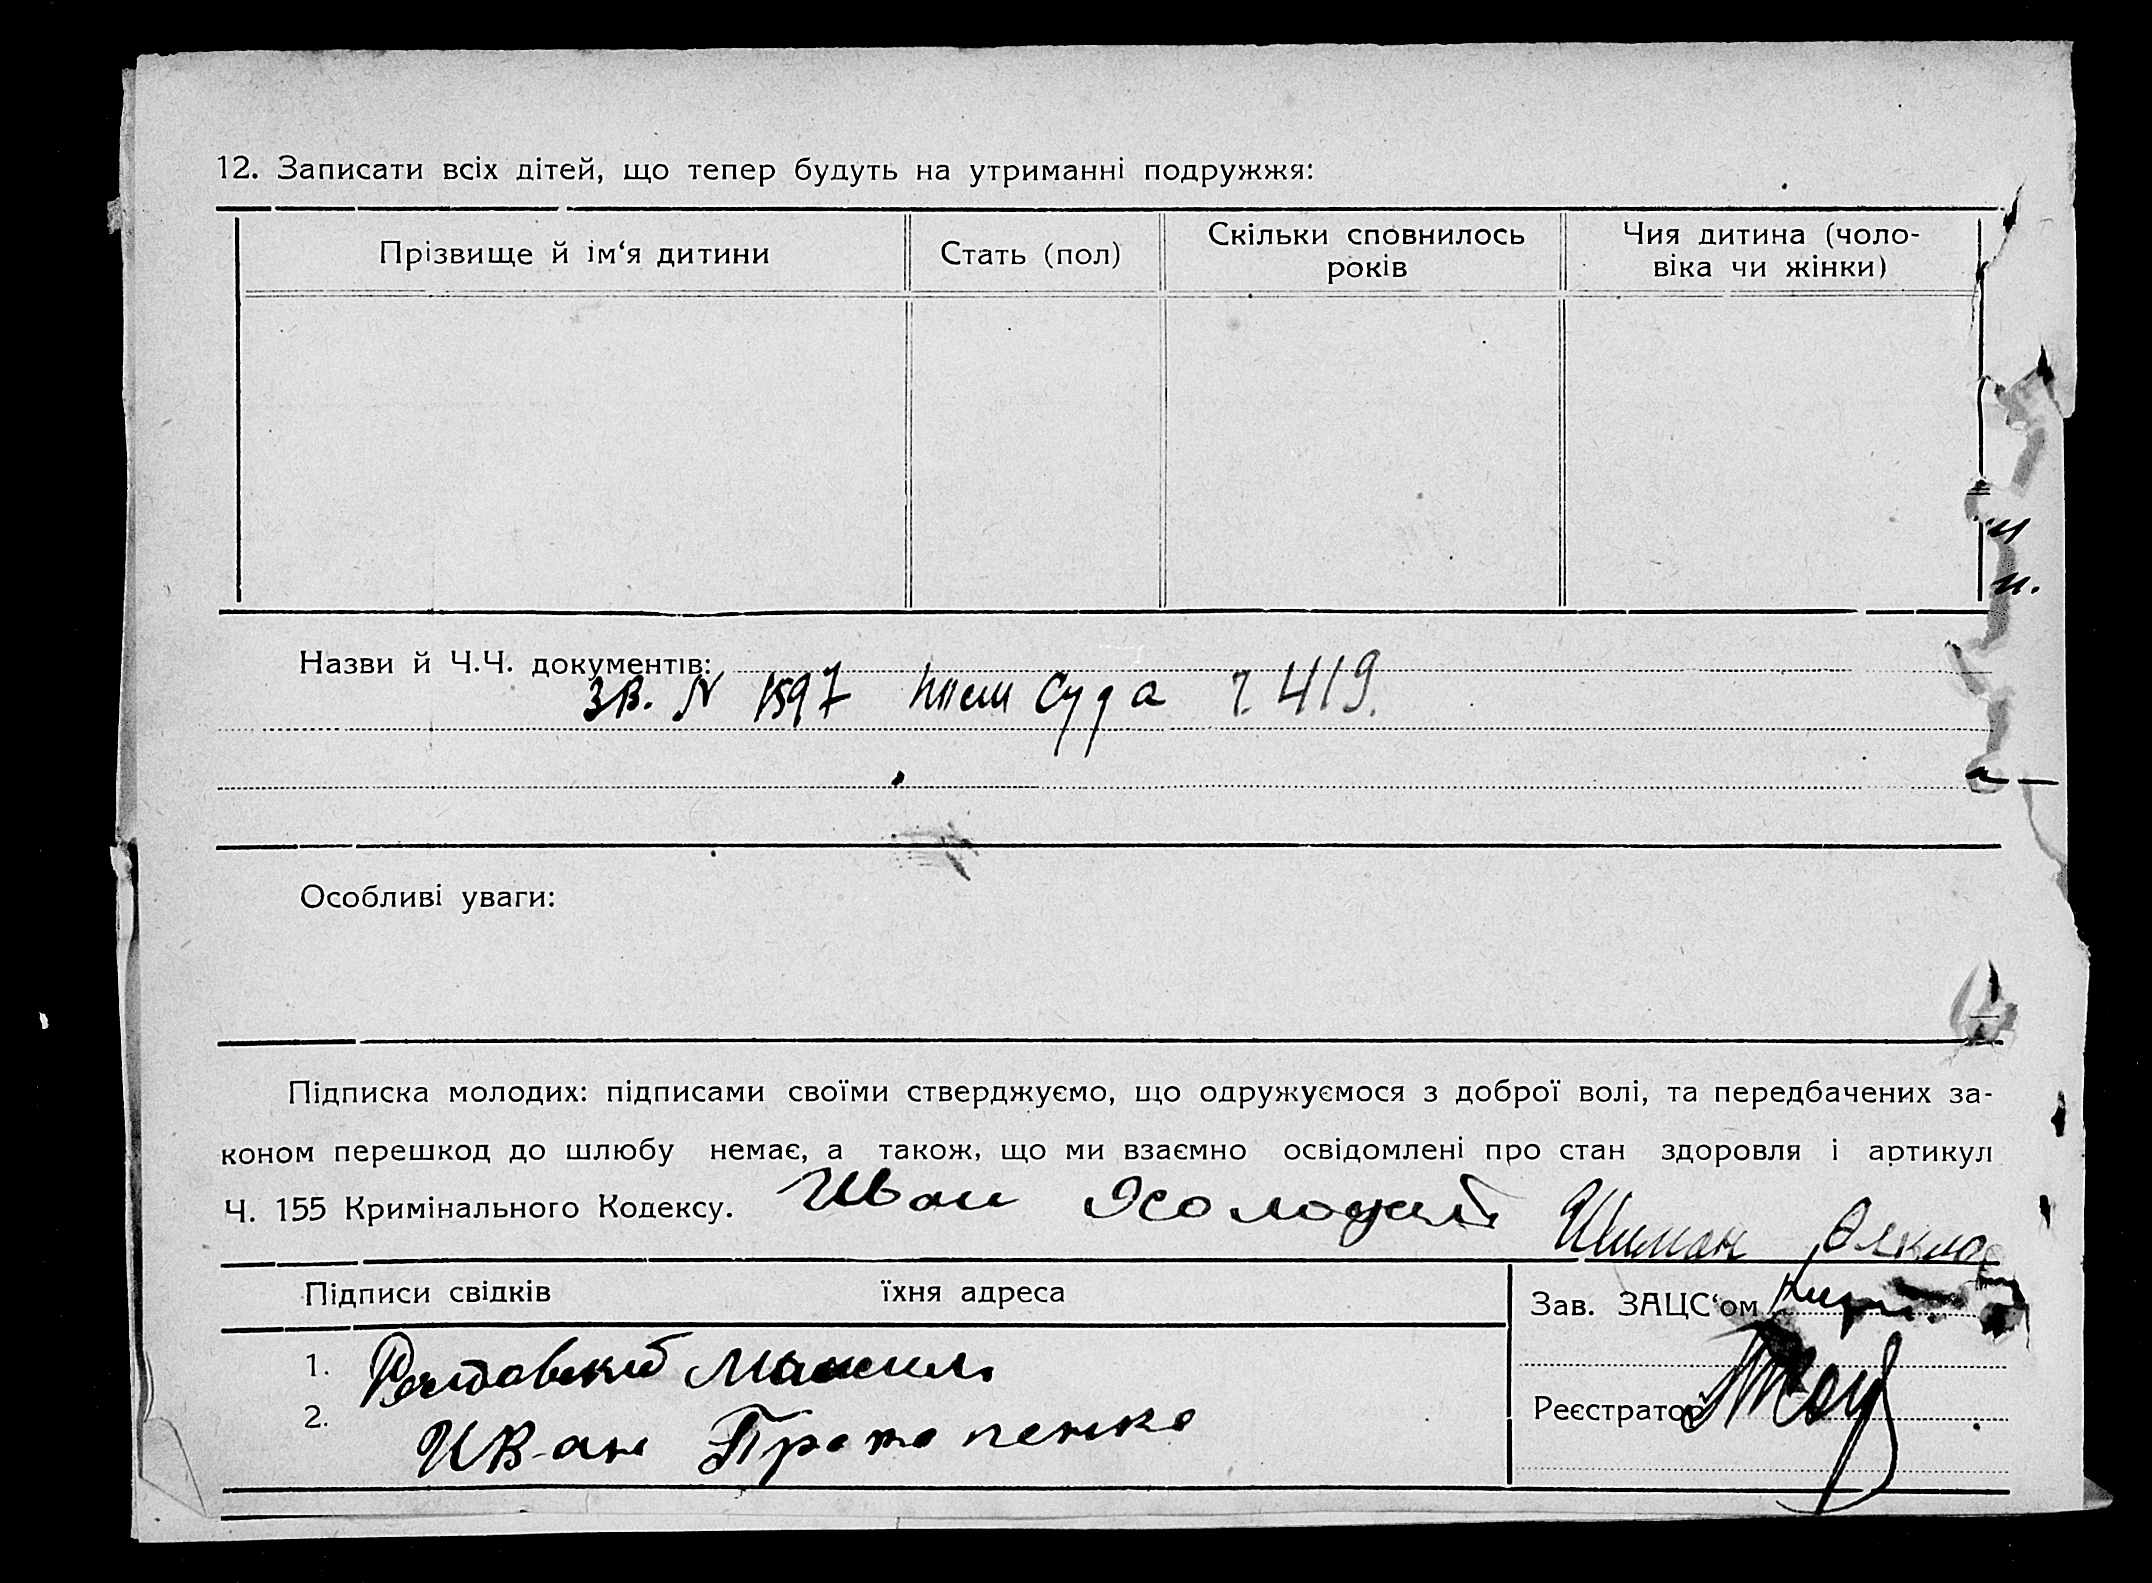 12. Записати всіх дітей, що тепер будуть на утриманні подружжя:
Прізвище й ім‘я дитини
Стать (пол)
Скільки сповнилось
років
Чия дитина (чоло-
віка чи жінки)
Назви й Ч.Ч. документів:
Зв. N 1597 суда ч. 419.
Особливі уваги:
Підписка молодих: підписами своїми стверджуємо, що одружуємося з доброї волі, та передбачених за-
коном перешкод до шлюбу немає, а також, що ми взаємно освідомлені про стан здоровля і артикул
Ч. 155 Кримінального Кодексу. Иван
Шиман
Підписи свідків їхня адреса
Зав. ЗАЦС‘ом
1.
2. Иван Протопенко
Реєстратор